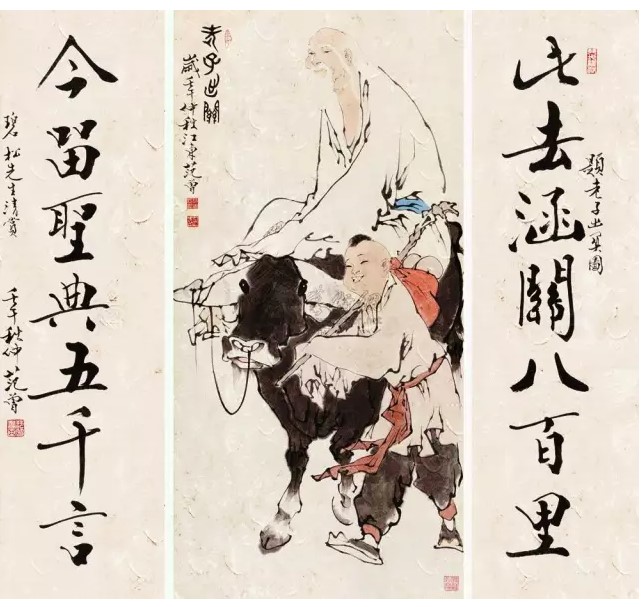 此去涵關八百里
題老子出關圖
老子出關
歲壬午仲秋江東范曾
今留聖典五千言
碧松先生清賞
壬午秋仲范曾